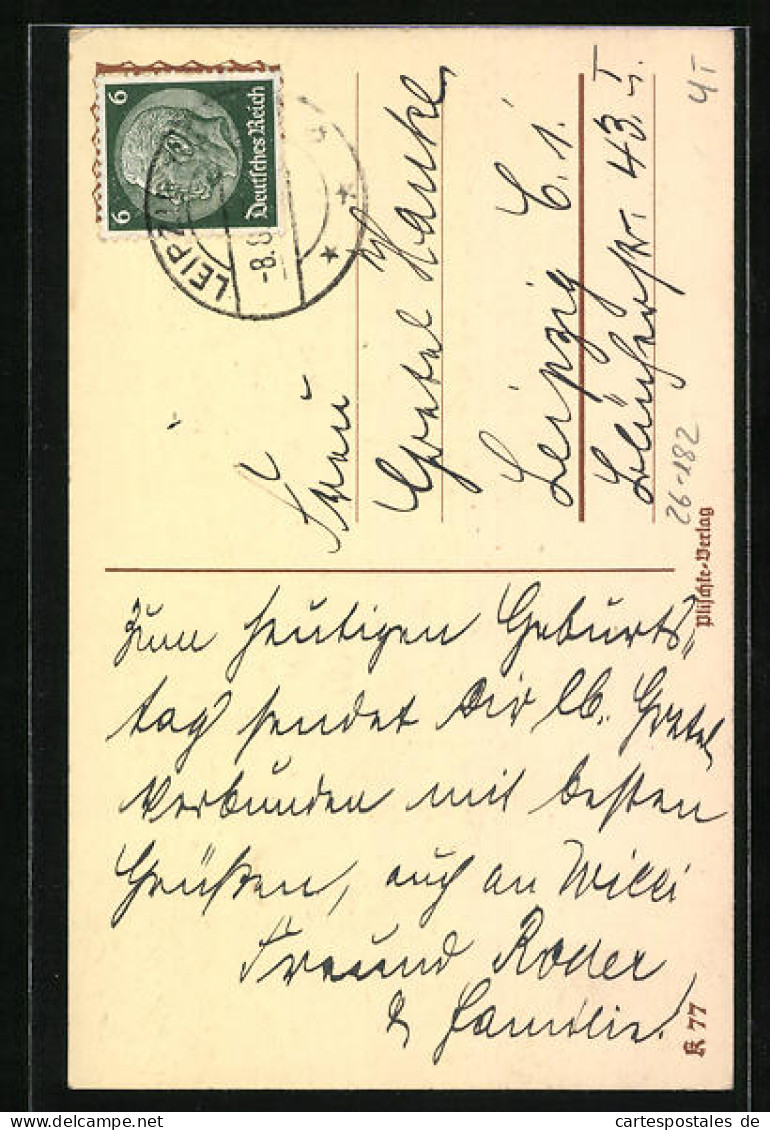 6 Deutsches Reich 6
LEIPZI
-8.0
Frau
Gretel Hanke
Leipzig C. 1.
43. I
4 I
26-182
Plischke-Verlag
Zum heutigen Geburts„
tag sendet Dir lb. Gretel
verbunden mit besten
Grüßen, auch an Willi
Freund Roder
& Familie.
K 77
cartespostales de